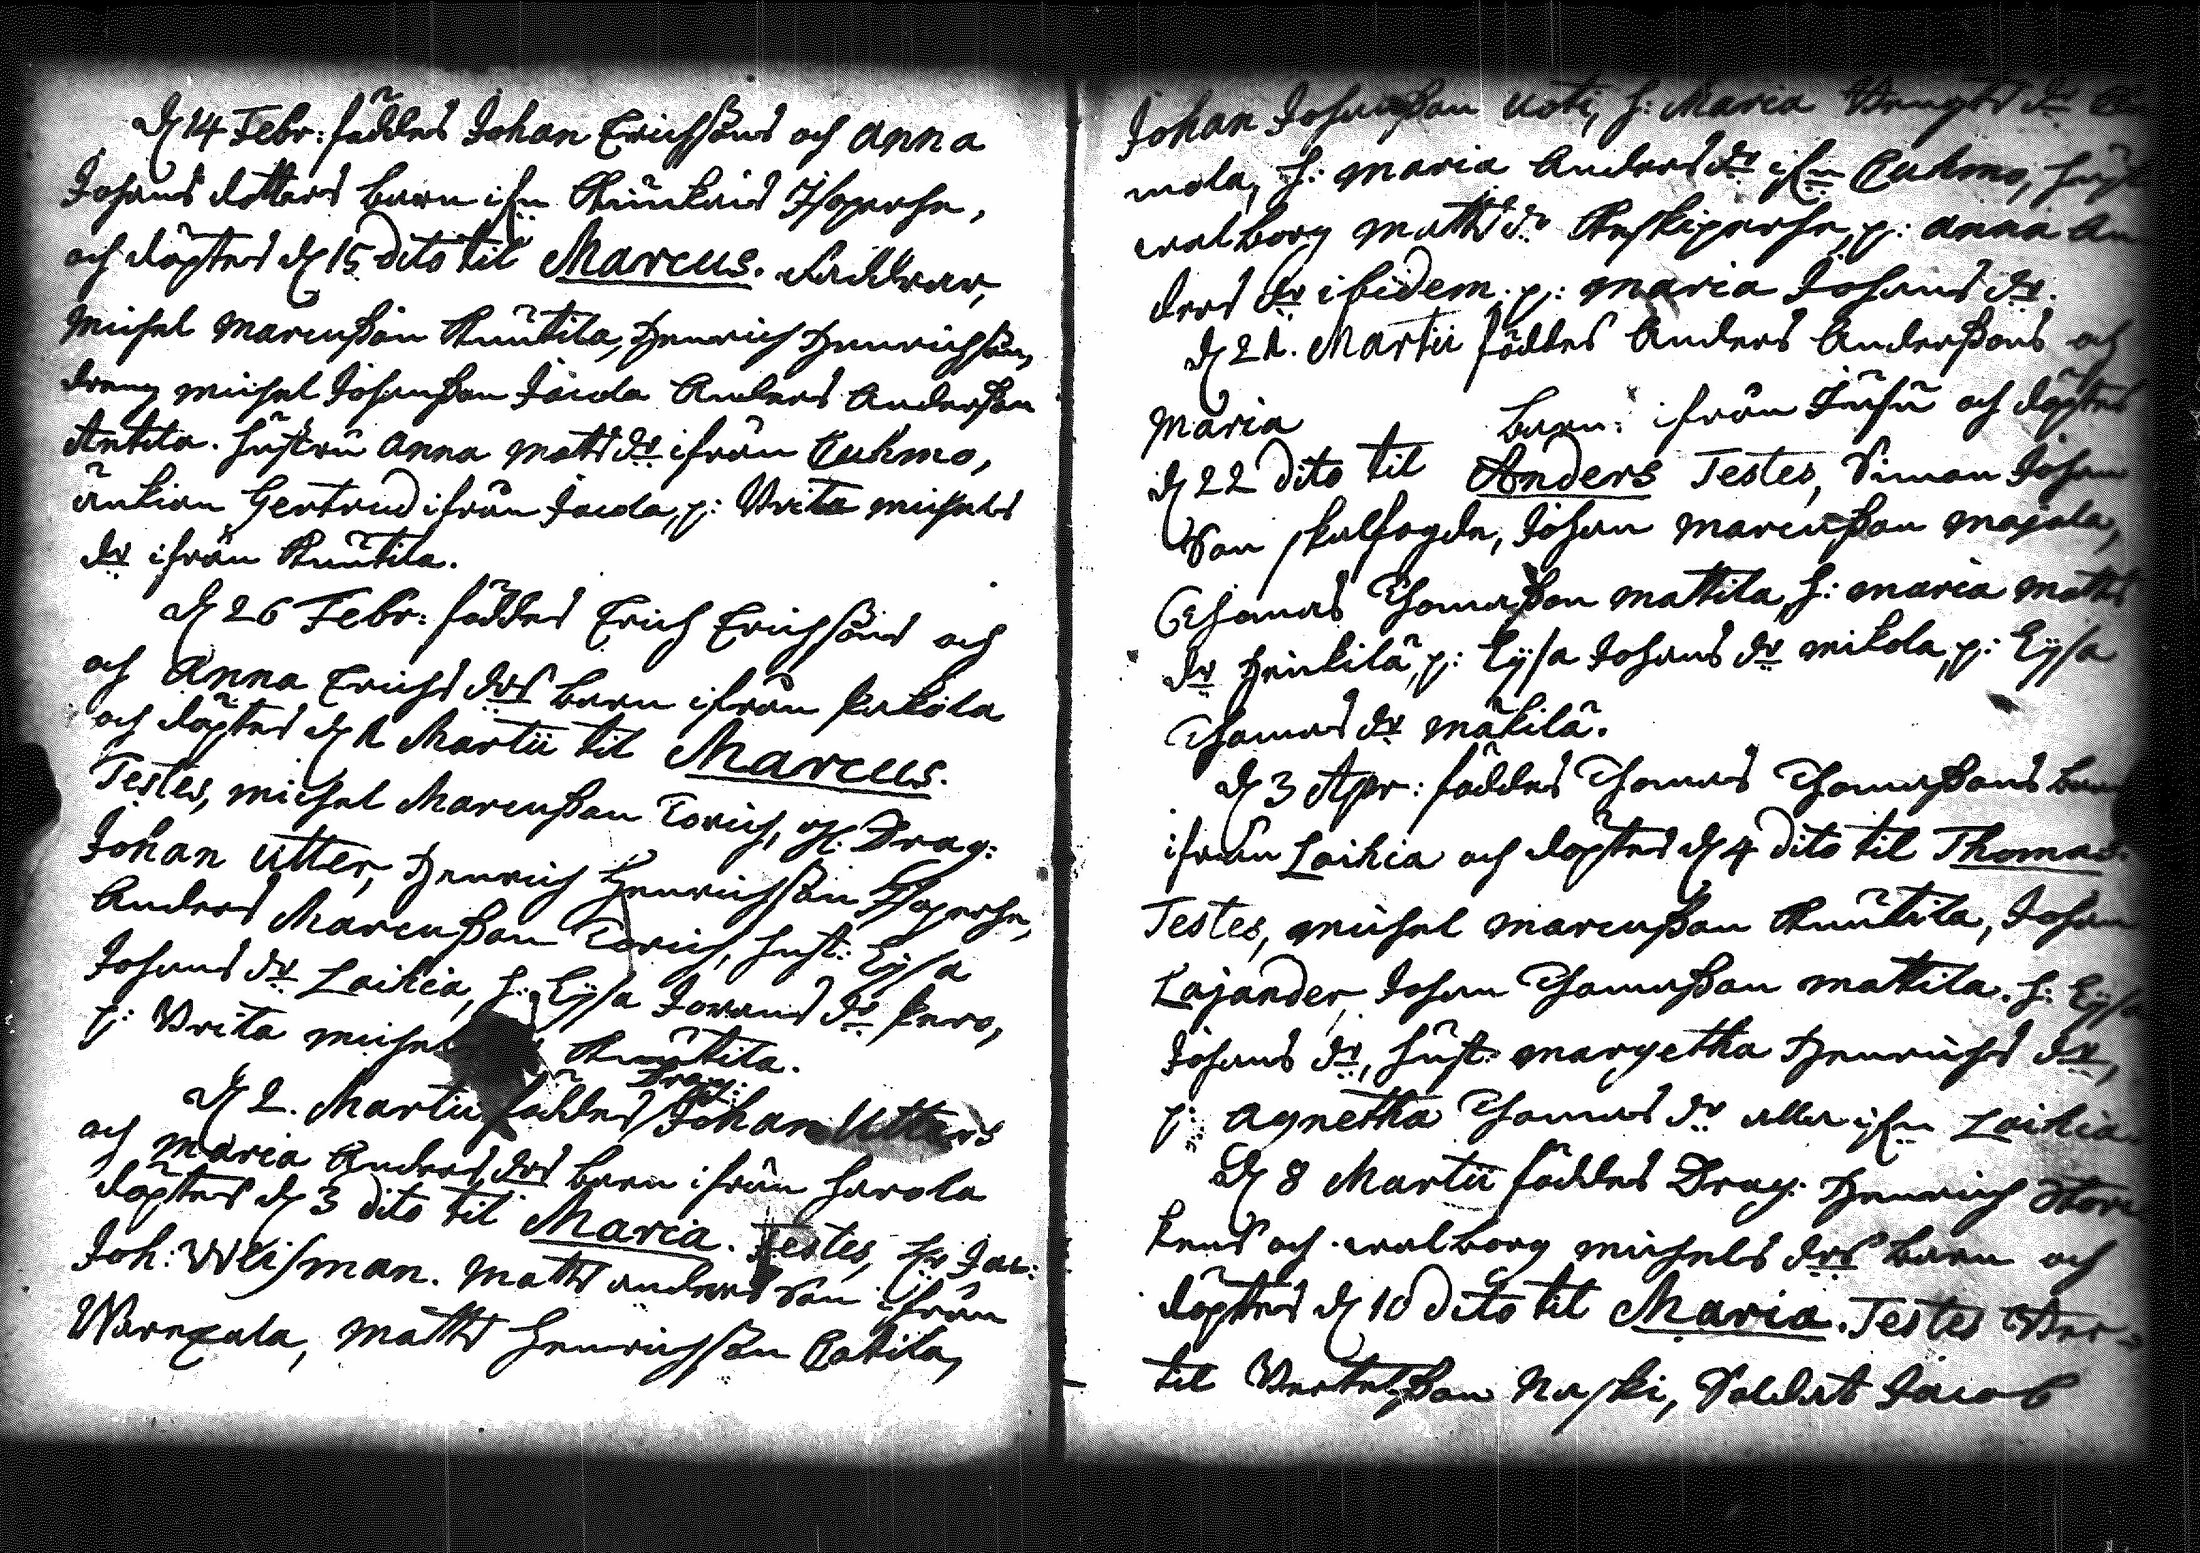 d 14 Febr: föddes Johan Erichsöns och Anna
Johans dotters barn ifrn Isoperhe,
och döptes d 15 dito til Marcus. Faddrar,
Michel Marcusson Knutila, Henrich Henrichsön,
dreng Michel Johansson Jacola Anders Andersson
Antila. hustru Anna Matts dr ifrån Cuhmo,
änkian Gertrud ifrån Jacola, p: Brita Michels
dr ifrån Knutila.
d 26 Febr: föddes Erich Erichsöns och
och Anna Erichs drs barn ifrån
och döptes d 1 Martii til Marcus.
Testes, Michel Marcusson Torich, Drag:
Johan Utter, Henrich Henrichsön Isoperhe,
Anders Marcusson Torich, hust: Lijsa
Johans dr Laihia, h: Lijsa dr Pero,
p: Brita Michels Knutila.
d 2. Martii föddes Drag: Johan Utters
och Maria Anders drs barn ifrån Harola
döptes d 3 dito til Maria. Testes, Hr Jac:
Joh: Weisman. Matts Anders Son ifrån
Matts Henrichsön
Johan Johansson Uoti, h: Maria Bengts dr
mola, h: Maria Anders dr ifrn Cuhmo,
Walborg Matts dr p: Anna An
ders dr ibidem. p: Maria Johans dr.
d 21. Martii föddes Anders Anderssons och
Maria barn: ifrån och döptes
d 22 dito til Anders Testes, Simon Johan
Son skalfogde, Johan Marcusson Majala,
Thomas Thomasson Mattila, h: Maria Matts
dr Heikilä, p: Lijsa Johans dr Mikola, p: Lijsa
Thomas dr Mäkilä.
d 3 Apr: föddes Thomas Thomassons barn
ifrån Laihia och döptes d 4 dito til Thomas.
Testes, Michel Marcusson Knutila, Johan
Lajander, Johan Thomasson Mattila. h: Lijsa
Johans dr, hust: Margetha Henrichs dr,
p: Agnetha Thomas dr alla ifrn Laihia
d 8 Martii föddes Drag: Henrich
kens och Walborg Michels drs barn och
döptes d 10 dito til Maria. Testes Ber-
til Bertelsson Naski, Soldat Jacob